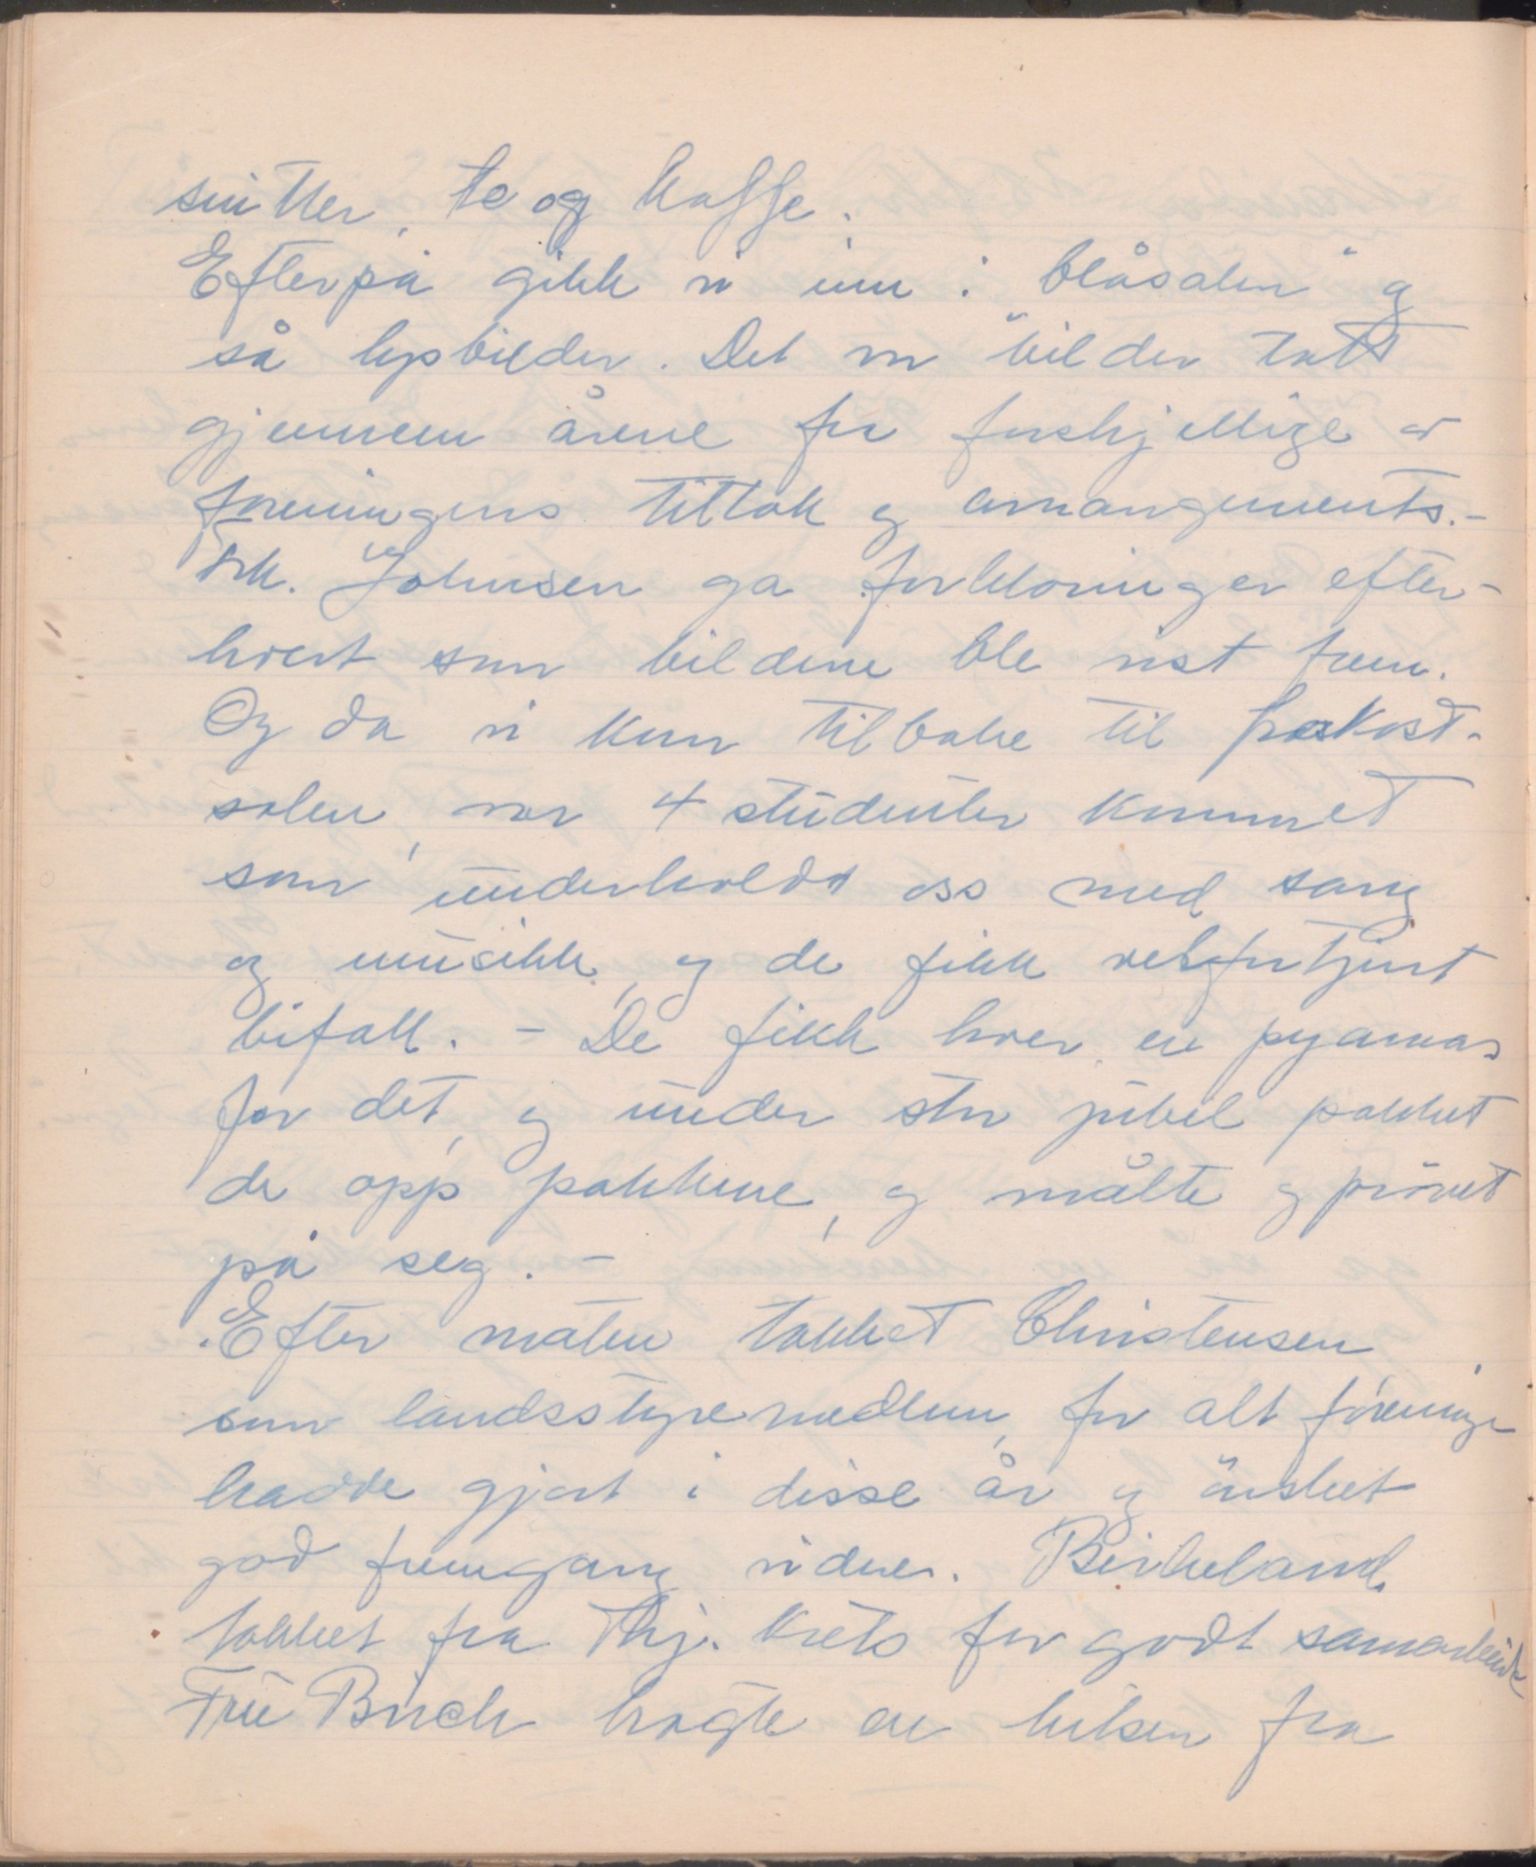 snitter, te og kaffe.
Efterpå gikk vi inn i "blåsalen" og
så lysbilder. Det var bilder tatt
gjennem årene fra forskjellige av
foreningens tiltak og arrangements.-
Frk. Johnsen ga forklaringer efter-
hvert som bildene ble vist frem.
Og da vi kom tilbake til frokost-
salen, var 4 studenter kommet
som underholdt oss med sang
og musikk, og de fikk velfortjent
bifall. - De fikk hver en pyamas
for det, og under stor jubel pakket
de opp pakkene, og målte og prövet
på seg. -
Efter maten takket Christensen
som landsstyremedlem, for alt foreningen
hadde gjort i disse år og önsket
god fremgang videre. Birkeland
takket fra Thj. krets for godt samarbeide
Fru Birch bragte en hilsen fra